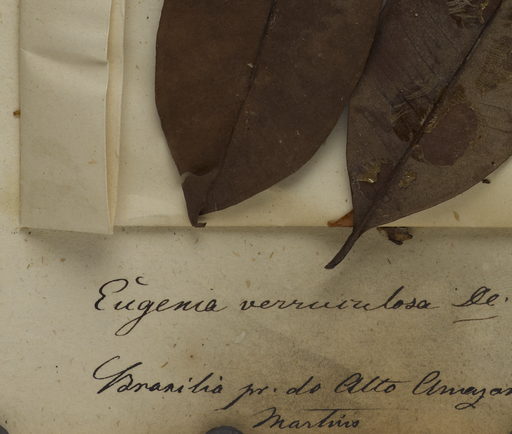 Eugenia verruculosa De.
Brasilia pr. do Alto Amazon
Martius